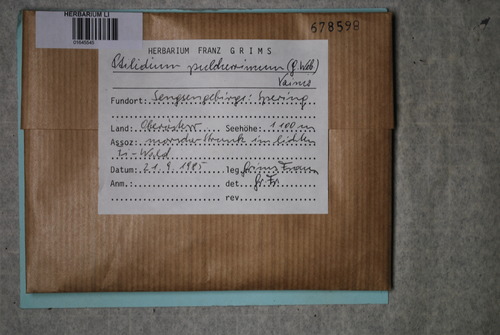 HERBARIUM LI
678598
HERBARIUM FRANZ GRIMS
Ptilidium pulcherrimum (G. Web)
Vainio
Fundort: Sengsengebirge: Spering
Land: Oberösterr. Seehöhe: 1100 m
Assoz: morscher Strunk im lichten
Fi-Wald
Datum: 21.9.1985 leg. Grims Franz
Anm.: det. Gr. Fr.
rev.